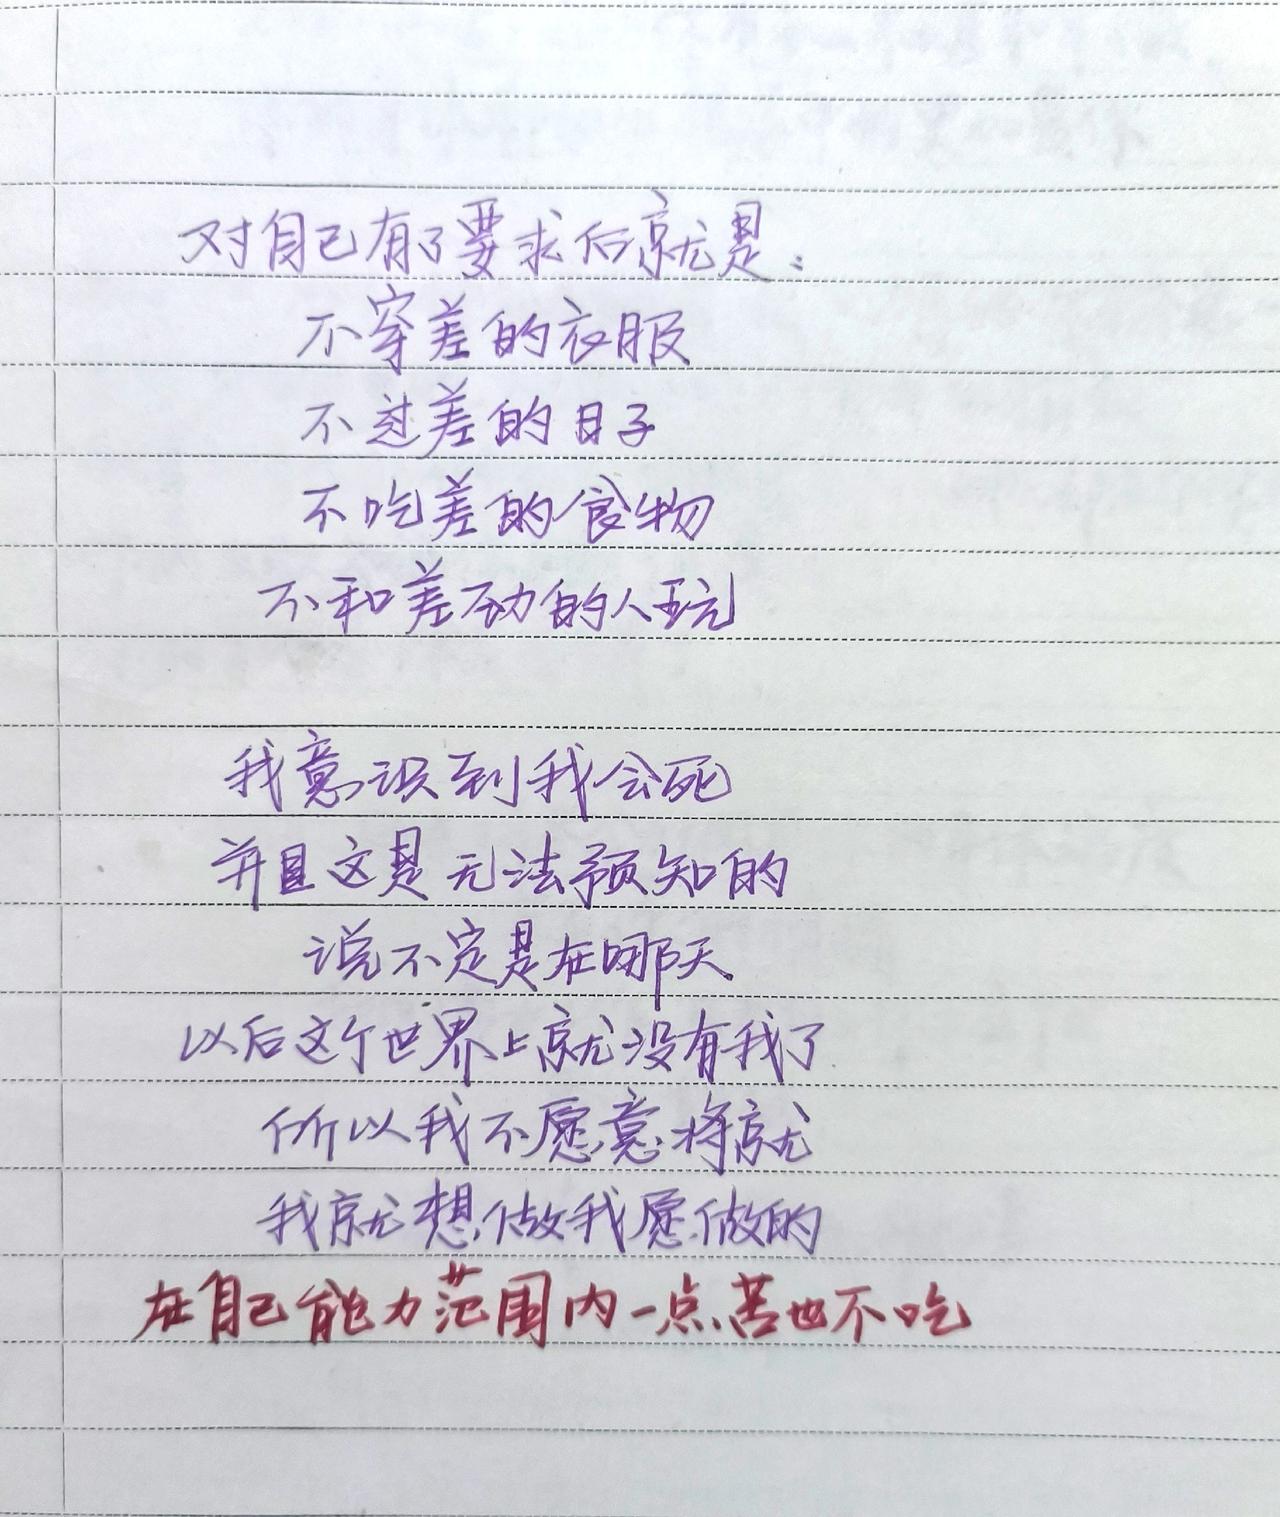 对自己有了要求后就是：
不穿差的衣服
不过差的日子
不吃差的食物
不和差劲的人玩
我意识到我会死
并且这是无法预知的
说不定是在哪天
以后这个世界上就没有我了
所以我不愿意将就
我就想做我愿做的
在自己能力范围内一点苦也不吃